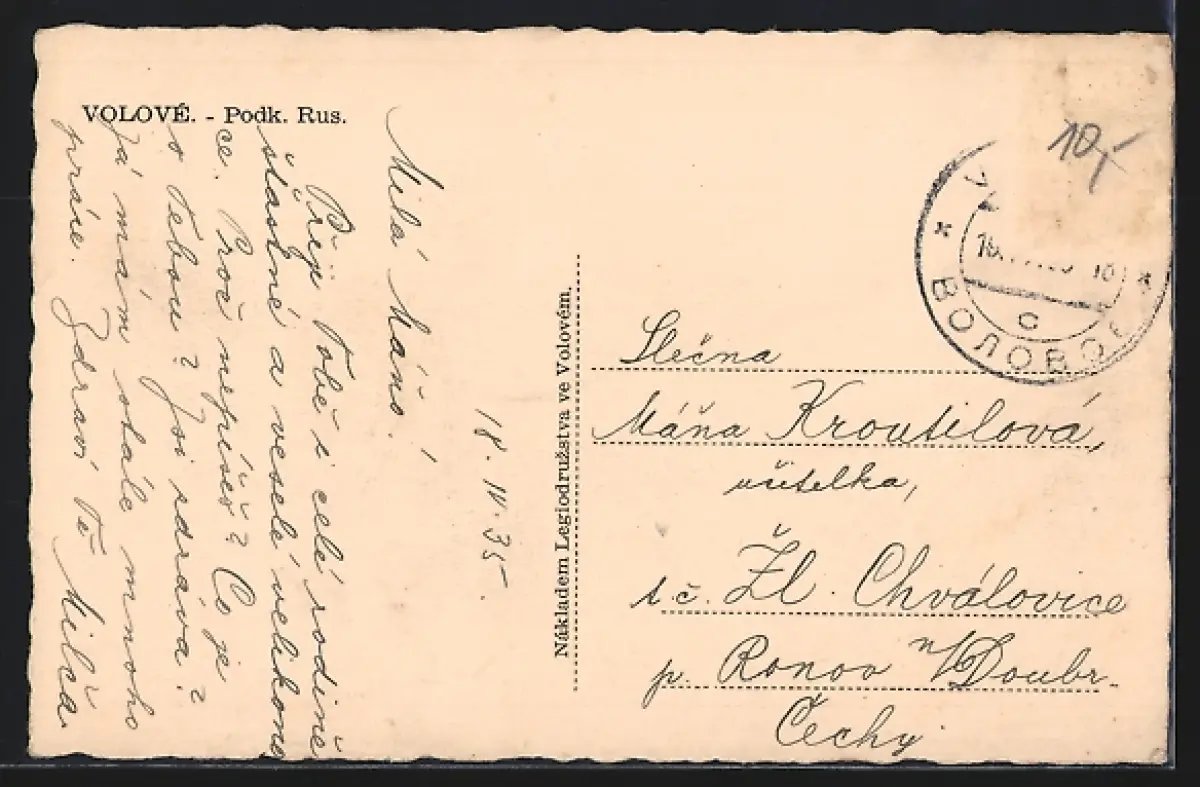 VOLOVÉ. - Podk. Rus.
18. IV. 35
Milá Máňo!
Přeji Tobě i celé rodině
šťastné a veselé velikono
ce. Proč nepíšeš? Co je
s Tebou? Jsi zdráva?
Já mám stále mnoho
práce. Zdraví Tě Milča.
Nákladem Legiodružstva ve Volovém.
10,-
ВОЛОВОЕ
c
Slečna
Máňa Kroutilová,
učitelka,
t. č. Žl. Chválovice
p. Ronov n/Doubr.
Čechy